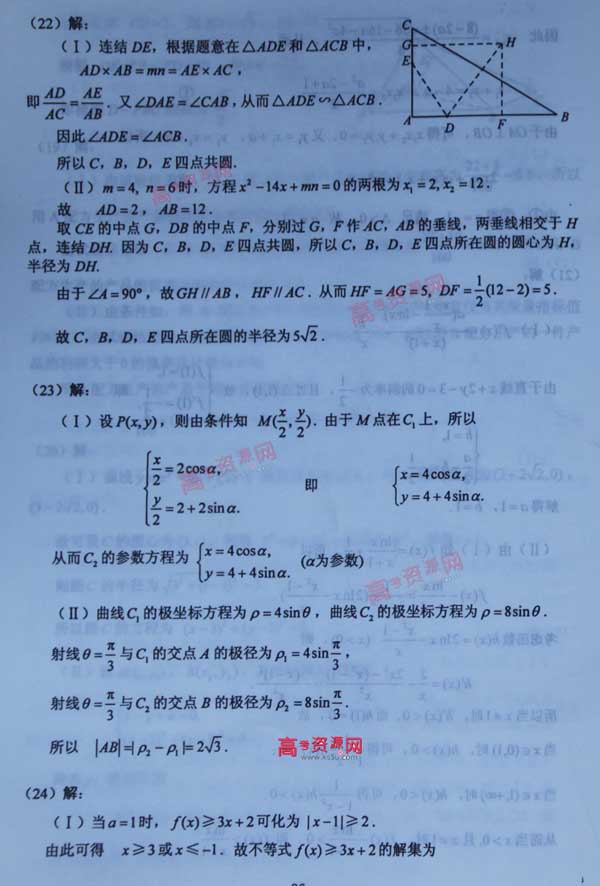 (22) 解:
C
G
H
E
A
D
F
B
(Ⅰ) 连结 DE, 根据题意在 △ADE 和 △ACB 中,
AD×AB=mn=AE×AC,
即 AD/AC = AE/AB. 又∠DAE=∠CAB, 从而 △ADE∽△ACB.
因此 ∠ADE=∠ACB.
所以 C, B, D, E 四点共圆.
(Ⅱ) m=4, n=6时, 方程 x²-14x+mn=0 的两根为 x₁=2, x₂=12.
故 AD=2, AB=12.
取 CE 的中点 G, DB 的中点 F, 分别过 G, F 作 AC, AB 的垂线, 两垂线相交于 H
点, 连结 DH. 因为 C, B, D, E 四点共圆, 所以 C, B, D, E 四点所在圆的圆心为 H,
半径为 DH.
由于 ∠A=90°, 故 GH∥AB, HF∥AC. 从而 HF=AG=5, DF=1/2(12-2)=5.
故 C, B, D, E 四点所在圆的半径为 5√2.
(23) 解:
(Ⅰ) 设 P(x,y), 则由条件知 M(x/2, y/2). 由于 M 点在 C₁ 上, 所以
{ x/2=2cosα, 即 { x=4cosα,
y/2=2+2sinα. y=4+4sinα.
从而 C₂ 的参数方程为 { x=4cosα, (α为参数)
y=4+4sinα.
(Ⅱ) 曲线 C₁ 的极坐标方程为 ρ=4sinθ, 曲线 C₂ 的极坐标方程为 ρ=8sinθ.
射线 θ=π/3 与 C₁ 的交点 A 的极径为 ρ₁=4sin π/3,
射线 θ=π/3 与 C₂ 的交点 B 的极径为 ρ₂=8sin π/3.
所以 |AB|=|ρ₂-ρ₁|=2√3.
高考资源网
www.ks5u.com
(24) 解:
(Ⅰ) 当 a=1 时, f(x)≥3x+2 可化为 |x-1|≥2.
由此可得 x≥3 或 x≤-1. 故不等式 f(x)≥3x+2 的解集为